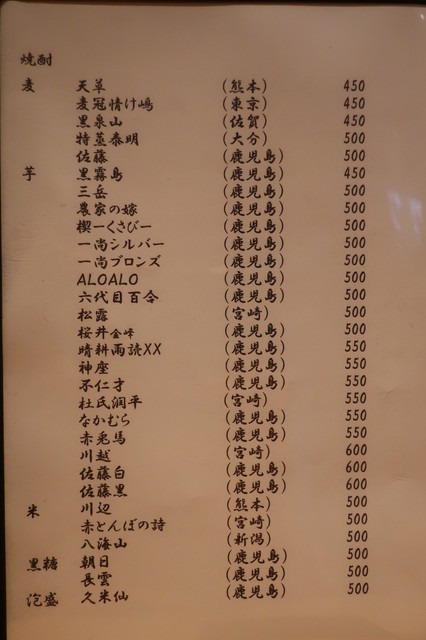 焼酎
麦 天草 (熊本) 450
麦冠情け嶋 (東京) 450
黒泉山 (佐賀) 450
特蒸泰明 (大分) 500
佐藤 (鹿児島) 500
芋 黒霧島 (鹿児島) 450
三岳 (鹿児島) 500
農家の嫁 (鹿児島) 500
楔一くさびー (鹿児島) 500
一尚シルバー (鹿児島) 500
一尚ブロンズ (鹿児島) 500
ALOALO (鹿児島) 500
六代目百合 (鹿児島) 500
松露 (宮崎) 500
桜井金峰 (鹿児島) 500
晴耕雨読XX (鹿児島) 550
神座 (鹿児島) 550
不仁才 (鹿児島) 550
杜氏潤平 (宮崎) 550
なかむら (鹿児島) 550
赤兎馬 (鹿児島) 550
川越 (宮崎) 600
佐藤白 (鹿児島) 600
佐藤黒 (鹿児島) 600
米 川辺 (熊本) 500
赤とんぼの詩 (宮崎) 500
八海山 (新潟) 500
黒糖 朝日 (鹿児島) 500
長雲 (鹿児島) 500
泡盛 久米仙 (鹿児島) 500